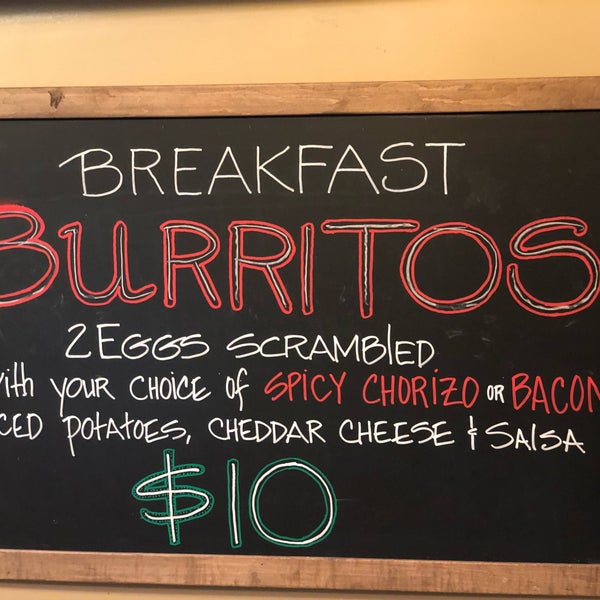 BREAKFAST
BURRITOS
2 EGGS SCRAMBLED
with your CHOICE of SPICY CHORIZO OR BACON
CED POTATOES, CHEDDAR CHEESE & SALSA
$10